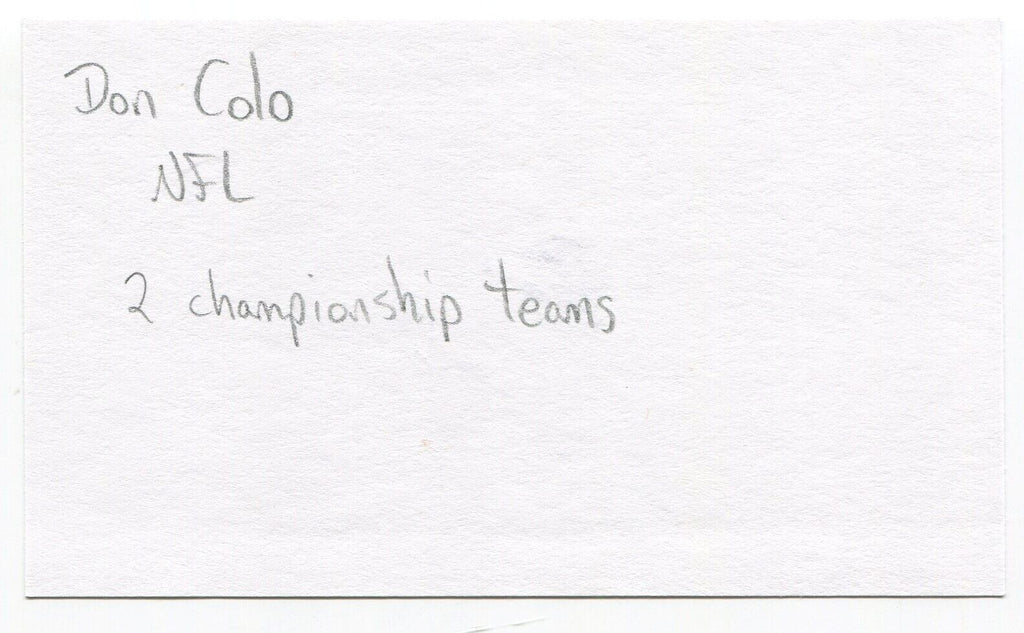 Don Colo
NFL
2 championship teams